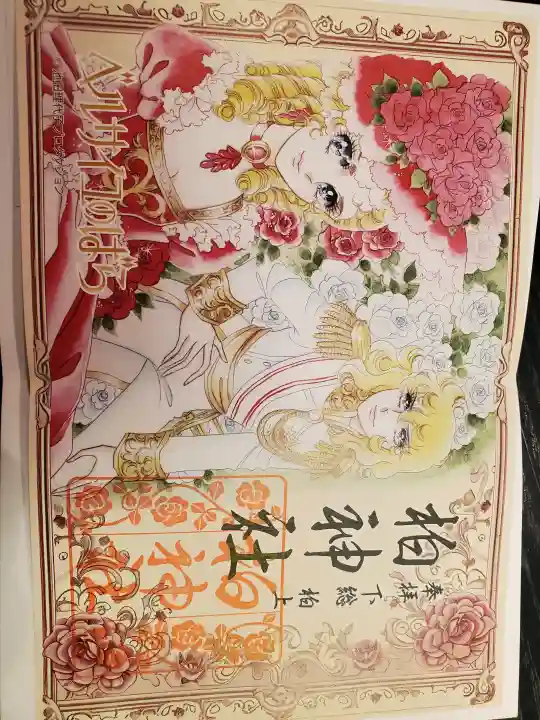 ベルサイユのばら
©池田理代子プロダクション
奉拝 下総 柏上
柏神社
柏神社